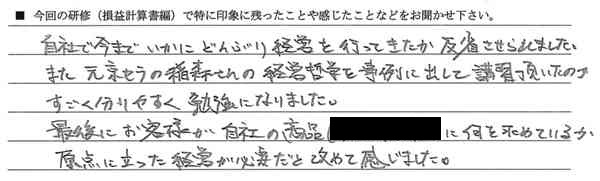 ■ 今回の研修（損益計算書編）で特に印象に残ったことや感じたことなどをお聞かせ下さい。
自社で今までいかにどんぶり経営を行ってきたか反省させられました。
また元京セラの稲森さんの経営哲学を事例に出して講習頂いたので
すごく分りやすく勉強になりました。
最後にお客様が自社の商品(に何を求めているか
原点に立った経営が必要だと改めて感じました。